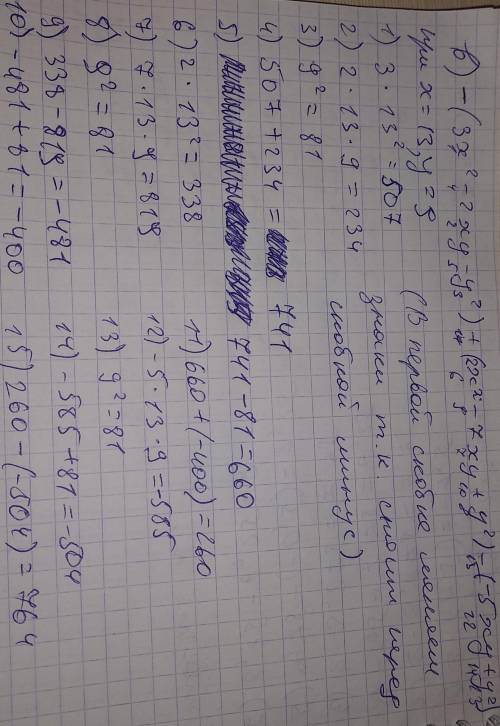 в) -(3x²-2xy-y²)+(2x²-7xy+y²)-(-5xy+y²)
при x=13, y=9 (В первой скобке меняем
1) 3·13²=507 знаки т.к. стоит перед
2) 2·13·9=234 скобкой минус)
3) 9²=81
4) 507+234= 741
5) 741-81=660
6) 2·13²=338
7) 7·13·9=819
8) 9²=81
9) 338-819=-481
10) -481+81=-400
11) 660+(-400)=260
12) -5·13·9=-585
13) 9²=81
14) -585+81=-504
15) 260-(-504)=764